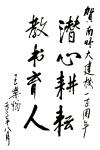 贺南师大建校一百周年
潜心耕耘
教书育人